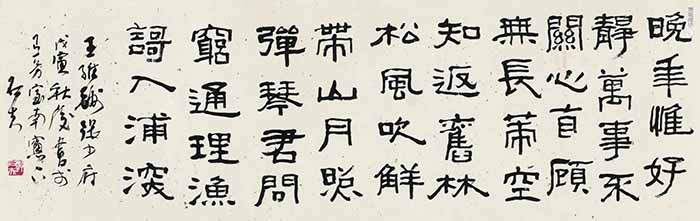 晚年惟好
靜萬事不
關心自顧
無長策空
知返舊林
松風吹解
帶山月照
彈琴君問
窮通理漁
謌入浦深
王維酬張少府
戊寅秋書於
室南窗下